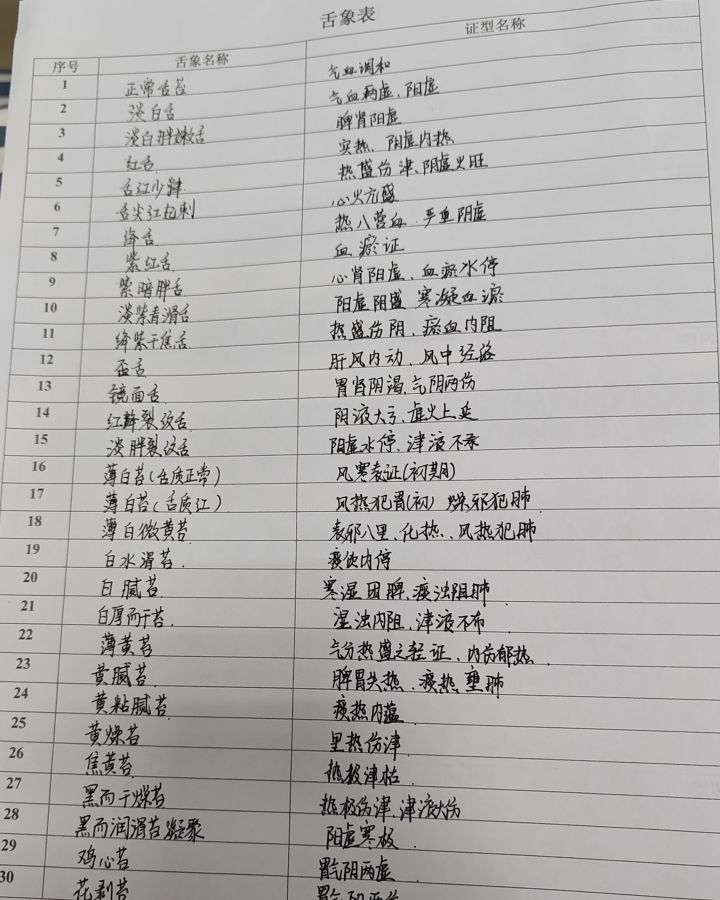 舌象表
序号 舌象名称 证型名称
1 正常舌苔 气血调和
2 淡白舌 气血两虚、阳虚
3 淡白胖嫩舌 脾肾阳虚
4 红舌 实热、阴虚内热
5 舌红少津 热盛伤津、阴虚火旺
6 舌尖红起刺 心火亢盛
7 绛舌 热入营血 严重阴虚
8 紫红舌 血瘀证
9 紫暗胖舌 心肾阳虚、血瘀水停
10 淡紫青滑舌 阳虚阴盛 寒凝血瘀
11 绛紫干焦舌 热盛伤阴、瘀血内阻
12 歪舌 肝风内动、风中经络
13 镜面舌 胃肾阴竭、气阴两伤
14 红绛裂纹舌 阴液大亏、虚火上炎
15 淡胖裂纹舌 阳虚水停、津液不承
16 薄白苔(舌质正常) 风寒表证(初期)
17 薄白苔(舌质红) 风热犯胃(初) 燥邪犯肺
18 薄白微黄苔 表邪入里、化热、风热犯肺
19 白水滑苔. 痰饮内停
20 白腻苔 寒湿困脾、痰浊阻肺
21 白厚而干苔. 湿浊内阻、津液不布
22 薄黄苔 气分热盛之轻证、内伤郁热.
23 黄腻苔. 脾胃失热、痰热壅肺
24 黄粘腻苔. 痰热内蕴.
25 黄燥苔 里热伤津.
26 焦黄苔. 热极津枯.
27 黑而干燥苔 热极伤津、津液大伤
28 黑而润滑苔凝聚 阳虚寒极
29 鸡心苔 胃气阴两虚
30 花剥苔 胃气阴两伤